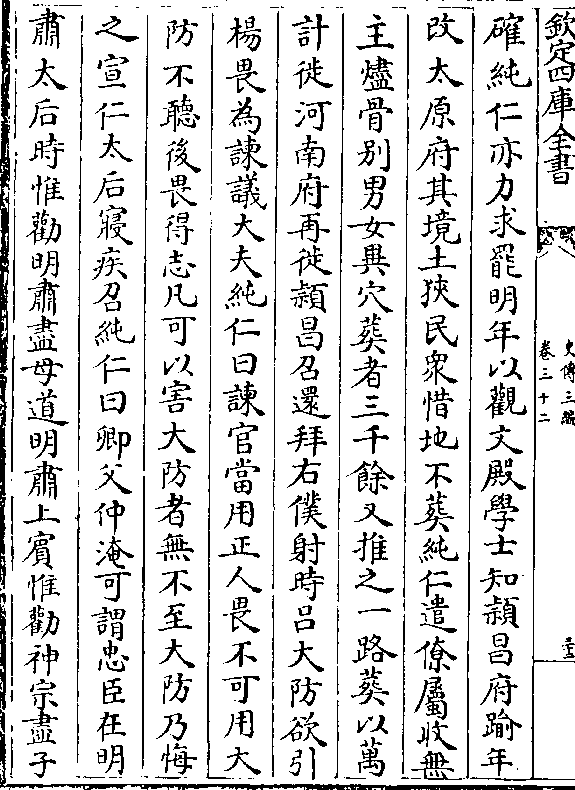 欽定四庫全書
史傳三編
卷三十二
確純仁亦力求罷明年以觀文殿學士知潁昌府踰年
改太原府其境土狹民衆惜地不葬純仁遣僚屬收無
主燼骨别男女異穴葬者三千餘又推之一路葬以萬
計徙河南府再徙潁昌召還拜右僕射時吕大防欲引
楊畏為諫議大夫純仁曰諫官當用正人畏不可用大
防不聽後畏得志凡可以害大防者無不至大防乃悔
之宣仁太后寢疾召純仁曰卿父仲淹可謂忠臣在明
肅太后時惟勸明肅盡母道明肅上賓惟勸神宗盡子